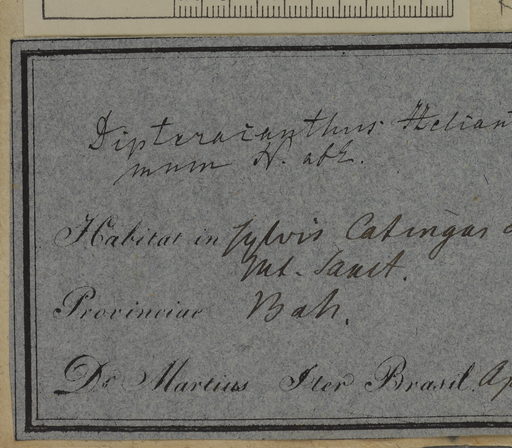 Dipteracanthus Helian
mum N. abE.
Habitat in sylvis Catingas
Mt. Sanct.
Provinciae Bah.
Dr Martius Iter Brasil. Ap